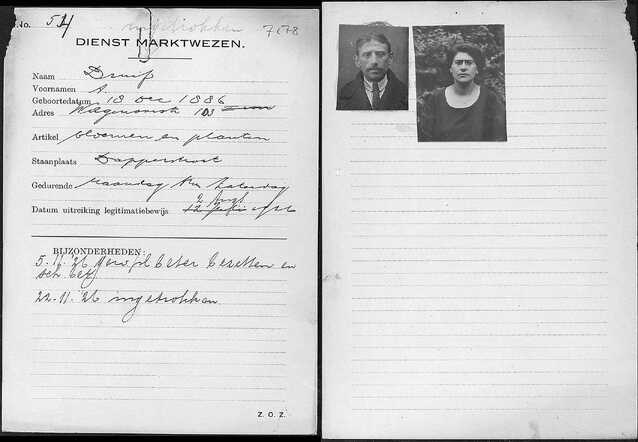 No. 54 ingetrokken 7578
DIENST MARKTWEZEN.
Naam Druif
Voornamen A.
Geboortedatum 18 Dec 1886
Adres 103
Artikel bloemen en planten
Staanplaats Dapperstraat
Gedurende Maandag t/m Zaterdag
2 Aug
Datum uitreiking legitimatiebewijs 12 Juli 1926
BIJZONDERHEDEN:
5.11.'26 beter bezetten en
22-11-'26 ingetrokken
Z.O.Z.